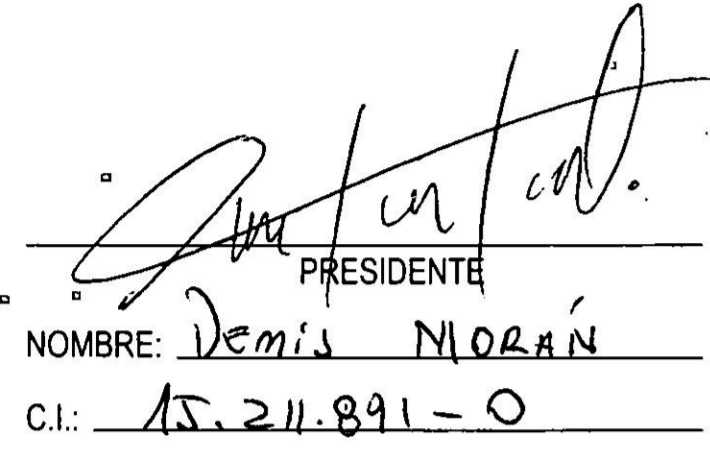 PRESIDENTE
NOMBRE: Demis MORÁN
C.I.: 15.211.891-0